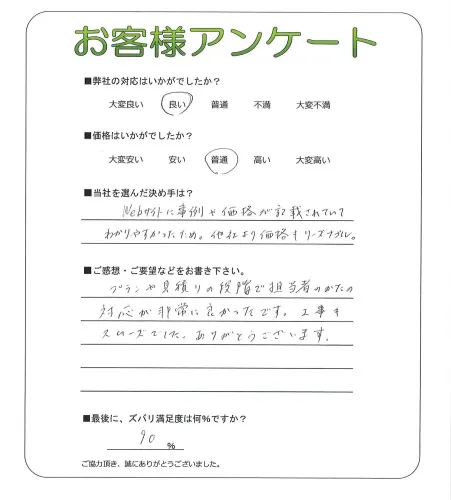 お客様アンケート
■弊社の対応はいかがでしたか?
大変良い 良い 普通 不満 大変不満
■価格はいかがでしたか?
大変安い 安い 普通 高い 大変高い
■当社を選んだ決め手は?
Webサイトに事例や価格が記載されていて
わかりやすかったため。他社より価格もリーズナブル。
■ご感想・ご要望などをお書き下さい。
プランや見積りの段階で担当者のかたの
対応が非常に良かったです。工事も
スムーズでした。ありがとうございます。
■最後に、ズバリ満足度は何%ですか?
90 %
ご協力頂き、誠にありがとうございました。